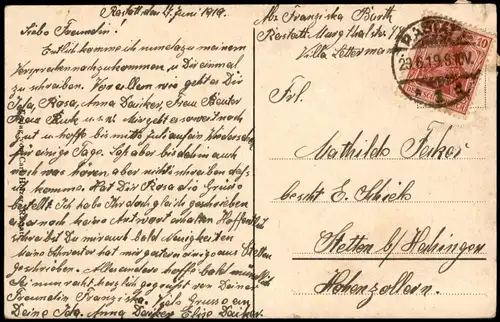 Rastatt den 27 Juni 1919.
Liebe Freundin!
Endlich komme ich nun dazu meinem
Versprechen nachzukommen, u Dir einmal
zu schreiben. Vor allem wie geht es Dir
Ida, Rosa, Anna Daiker, Frau Beuter
Frau u.s.w. Mir geht es soweit noch
gut u hoffe bis mitte Juli auf ein Wiedersehn
für einige Tage. Laß aber bei dein auch
noch was hören, aber nicht schreiben daß
komme. Hat Dir Rosa die Grüße
bestellt. Ich habe Ihr dann gleich geschrieben
aber noch keine Antwort erhalten Hoffentlich
schreibst Du mir auch bald Neuigkeiten
Meine Schwester hat mir gestern einiges aus Stetten
geschrieben. Alles andere hoffe bald mündlich
Sei nun recht herzlich gegrüßt von Deiner
Freundin Franziska. Viele Grüsse an
Deine Ida, Anna Daiker Elise Daiker.
Abs. Franziska Barth
Rastatt Murgthalstr. 17
Villa Lettermann
RASTATT
29.6.19.8.10V.
10
Frl.
Mathilde Ferker
bescht E. Schick
Stetten b/ Hechingen
Hohenzollern.